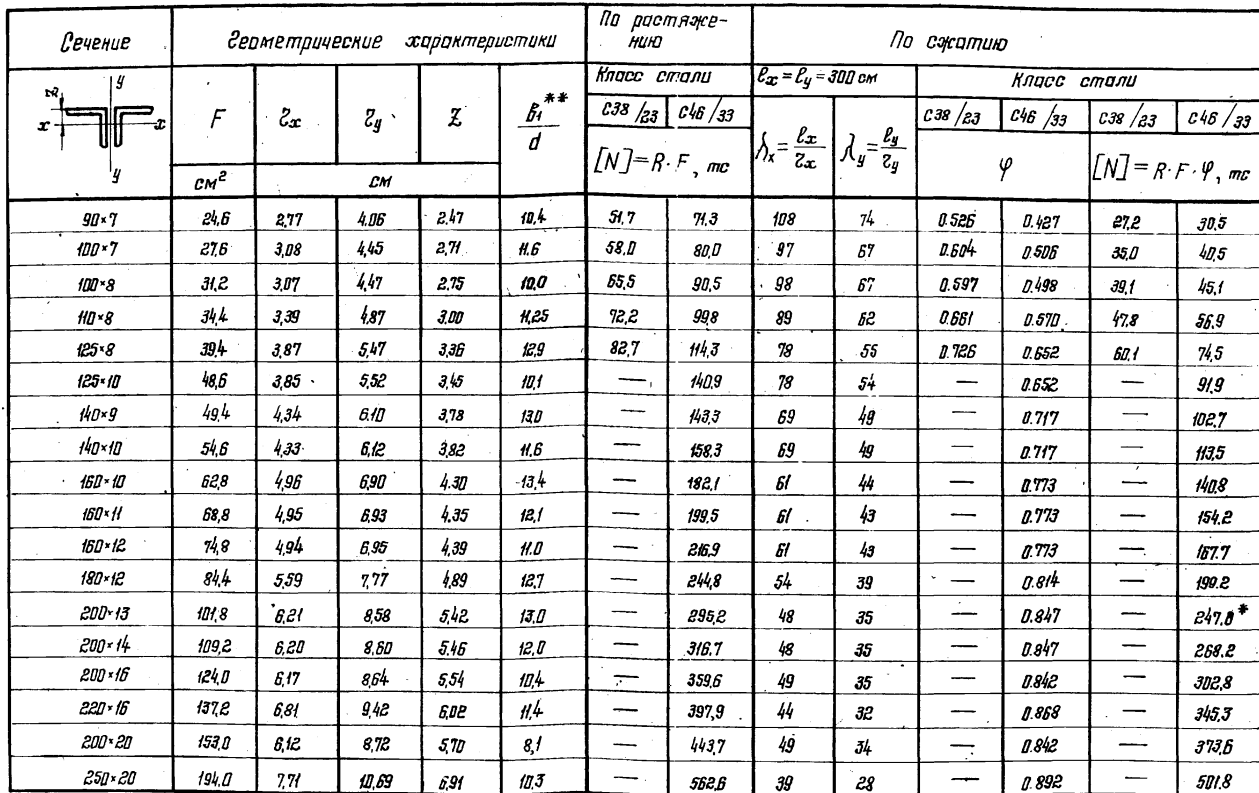 Сечение Геометрические характеристики По растяже-нию По сжатию
Класс стали lx = ly = 300 см Класс стали
R x x y y F rx ry Z b1** / d С38/23 С46/33 λx = lx/rx λy = ly/ry С38/23 С46/33 С38/23 С46/33
см² см [N] = R·F, тс φ [N] = R·F·φ, тс
90×7 24,6 2,77 4,06 2,47 10,4 51,7 71,3 108 74 0.526 0.427 27,2 30,5
100×7 27,6 3,08 4,45 2,71 11.6 58,0 80,0 97 67 0.604 0.506 35,0 40,5
100×8 31,2 3,07 4,47 2,75 10,0 65,5 90,5 98 67 0.597 0.498 39,1 45,1
110×8 34,4 3,39 4,87 3,00 11,25 72,2 99,8 89 62 0.661 0.570 47,8 56,9
125×8 39,4 3,87 5,47 3,36 12,9 82,7 114,3 78 55 0.726 0.652 60,1 74,5
125×10 48,6 3,85 5,52 3,45 10,1 — 140,9 78 54 — 0.652 — 91,9
140×9 49,4 4,34 6.10 3,78 13,0 — 143,3 69 49 — 0.717 — 102,7
140×10 54,6 4,33 6,12 3,82 11,6 — 158,3 69 49 — 0.717 — 113,5
160×10 62,8 4,96 6,90 4.30 13,4 — 182,1 61 44 — 0.773 — 140,8
160×11 68,8 4,95 6,93 4.35 12,1 — 199,5 61 43 — 0.773 — 154,2
160×12 74,8 4,94 6,95 4,39 11.0 — 216,9 61 43 — 0.773 — 167.7
180×12 84,4 5,59 7,77 4,89 12,7 — 244,8 54 39 — 0.814 — 199.2
200×13 101,8 6,21 8,58 5,42 13,0 — 295,2 48 35 — 0.847 — 247,8*
200×14 109,2 6,20 8,60 5,46 12,0 — 316,7 48 35 — 0.847 — 268,2
200×16 124,0 6,17 8,64 5,54 10,4 — 359,6 49 35 — 0.842 — 302,8
220×16 137,2 6,81 9,42 6,02 11,4 — 397,9 44 32 — 0.868 — 345,3
200×20 153,0 6,12 8,72 5,70 8,1 — 443,7 49 34 — 0.842 — 373,6
250×20 194,0 7,71 10,69 6,91 10,3 — 562,6 39 28 — 0.892 — 501.8